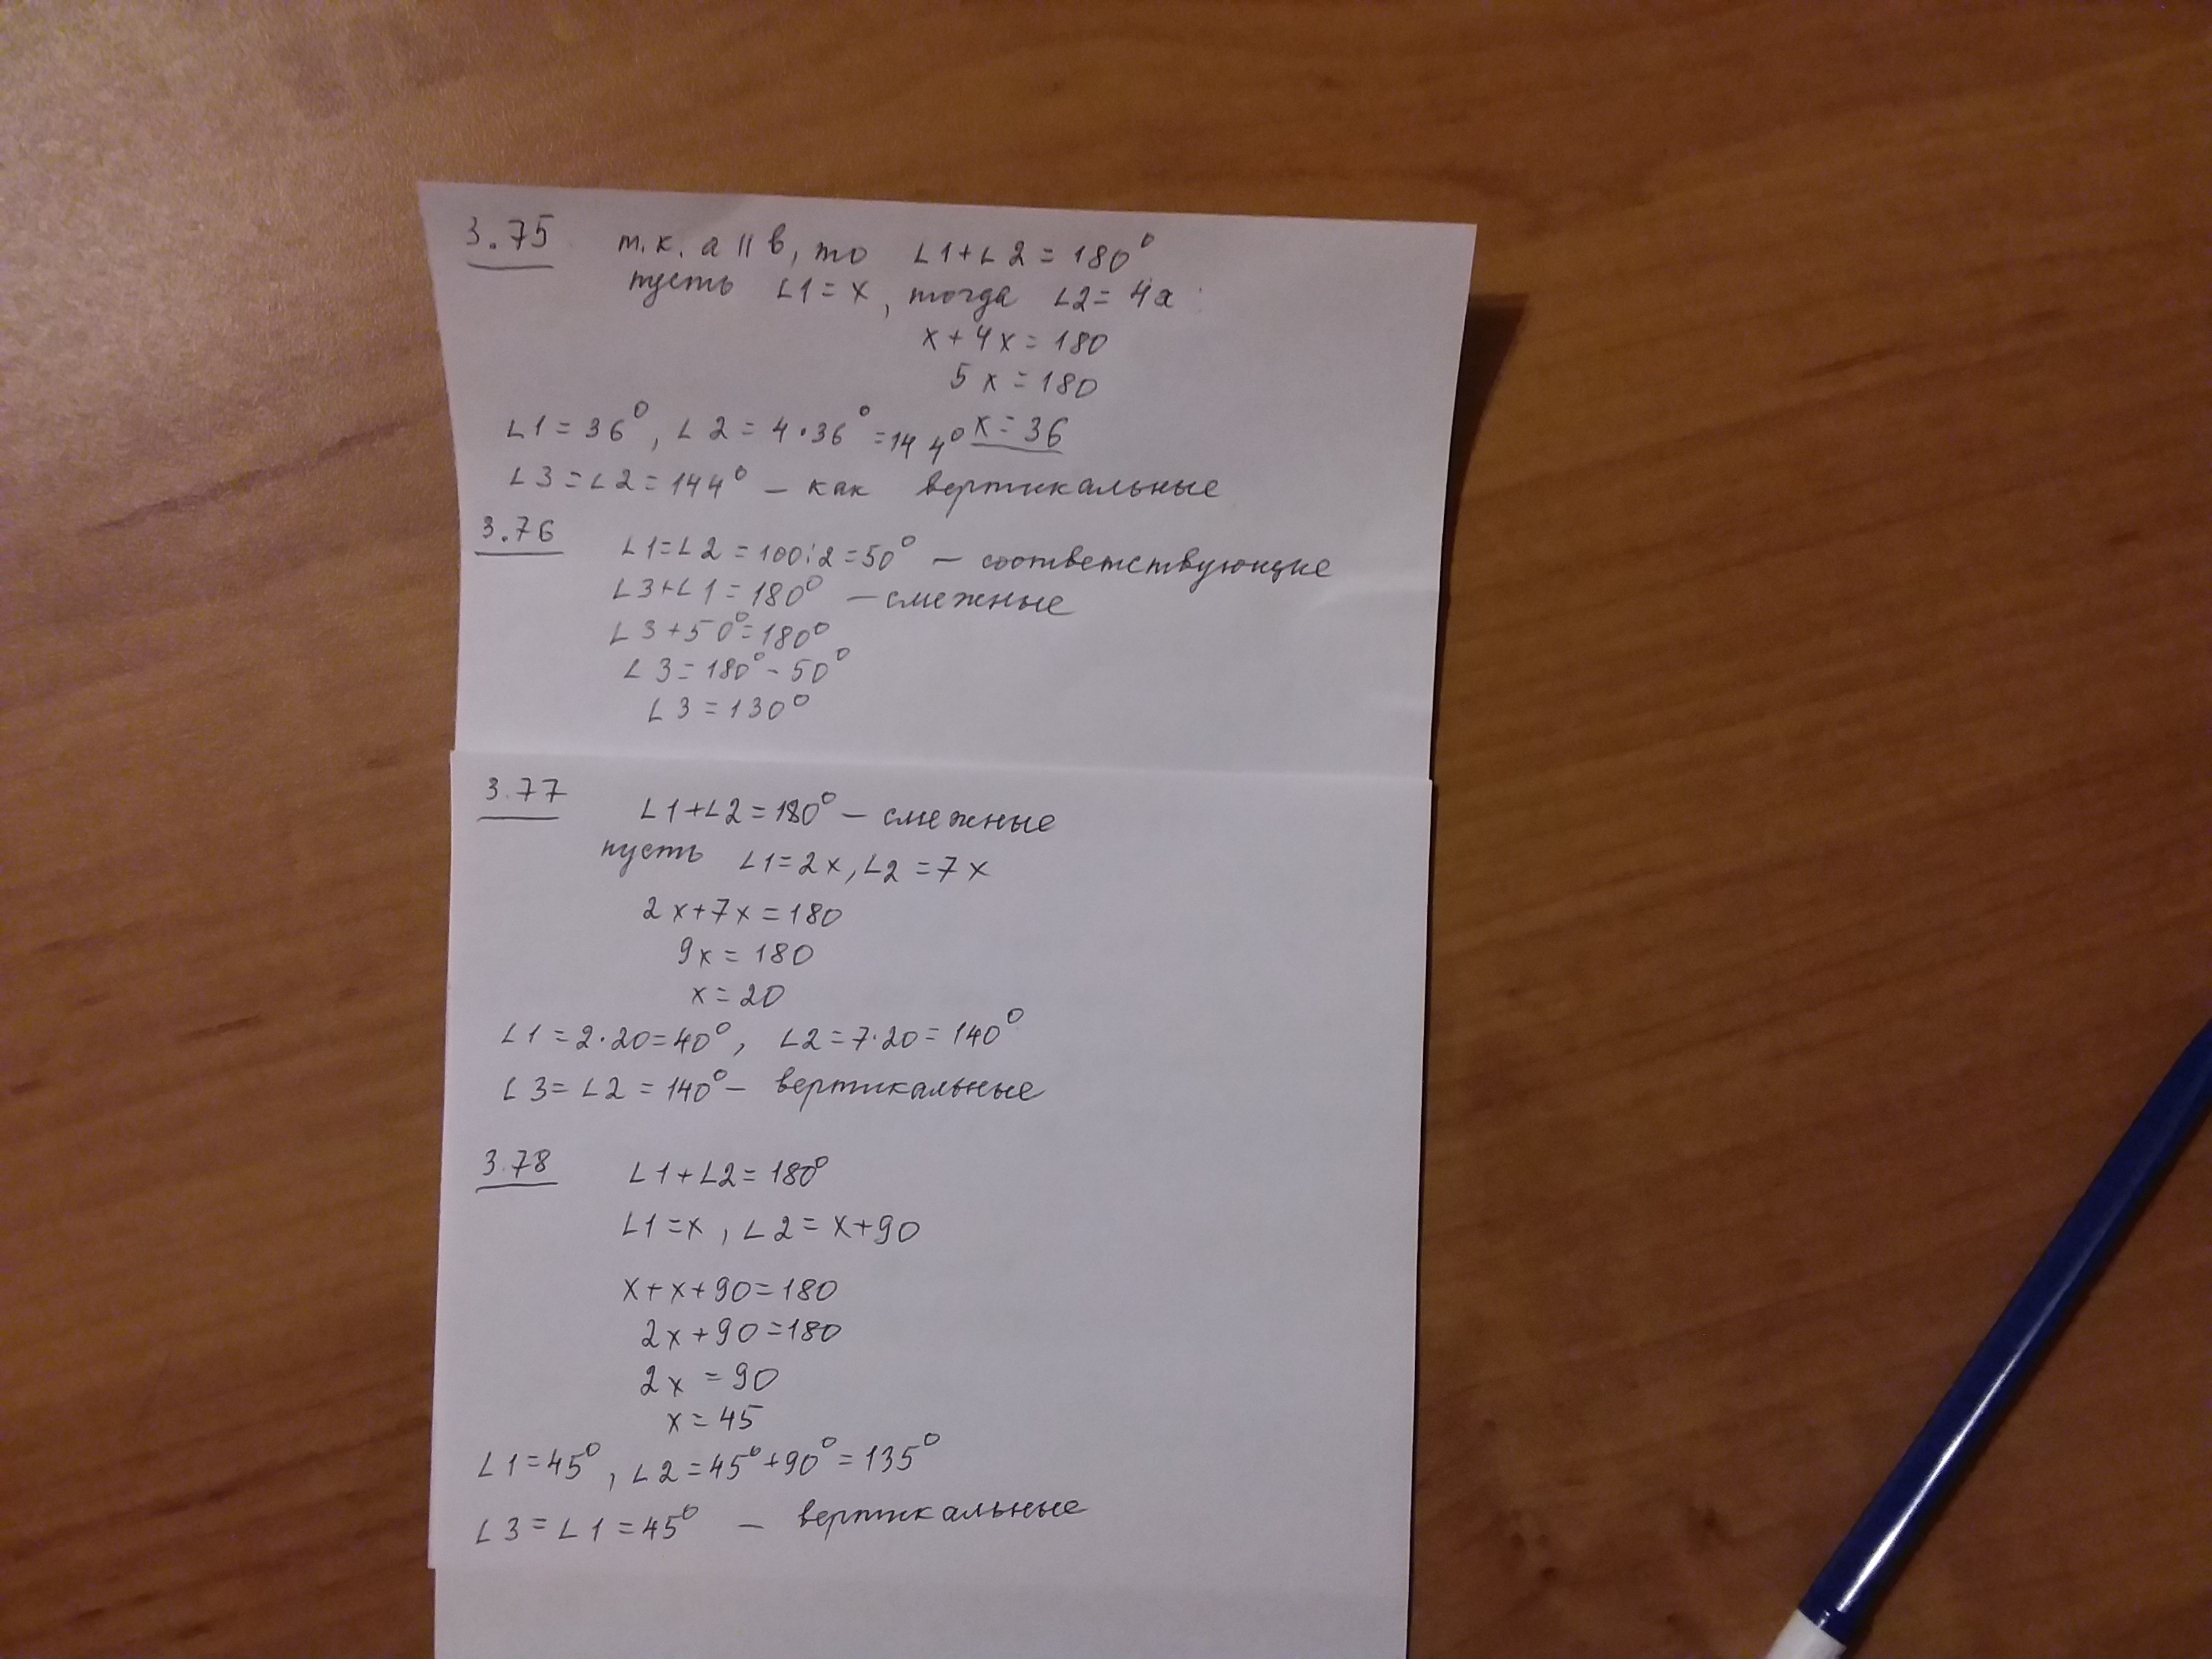 3.75 т.к. a || в, то ∠1+∠2=180°
пусть ∠1=x, тогда ∠2=4x
x+4x=180
5x=180
x=36
∠1=36°, ∠2=4·36°=144°
∠3=∠2=144° – как вертикальные
3.76 ∠1=∠2=100:2=50° – соответствующие
∠3+∠1=180° – смежные
∠3+50°=180°
∠3=180°-50°
∠3=130°
3.77 ∠1+∠2=180° – смежные
пусть ∠1=2x, ∠2=7x
2x+7x=180
9x=180
x=20
∠1=2·20=40°, ∠2=7·20=140°
∠3=∠2=140° – вертикальные
3.78 ∠1+∠2=180°
∠1=x, ∠2=x+90
x+x+90=180
2x+90=180
2x=90
x=45
∠1=45°, ∠2=45°+90°=135°
∠3=∠1=45° – вертикальные